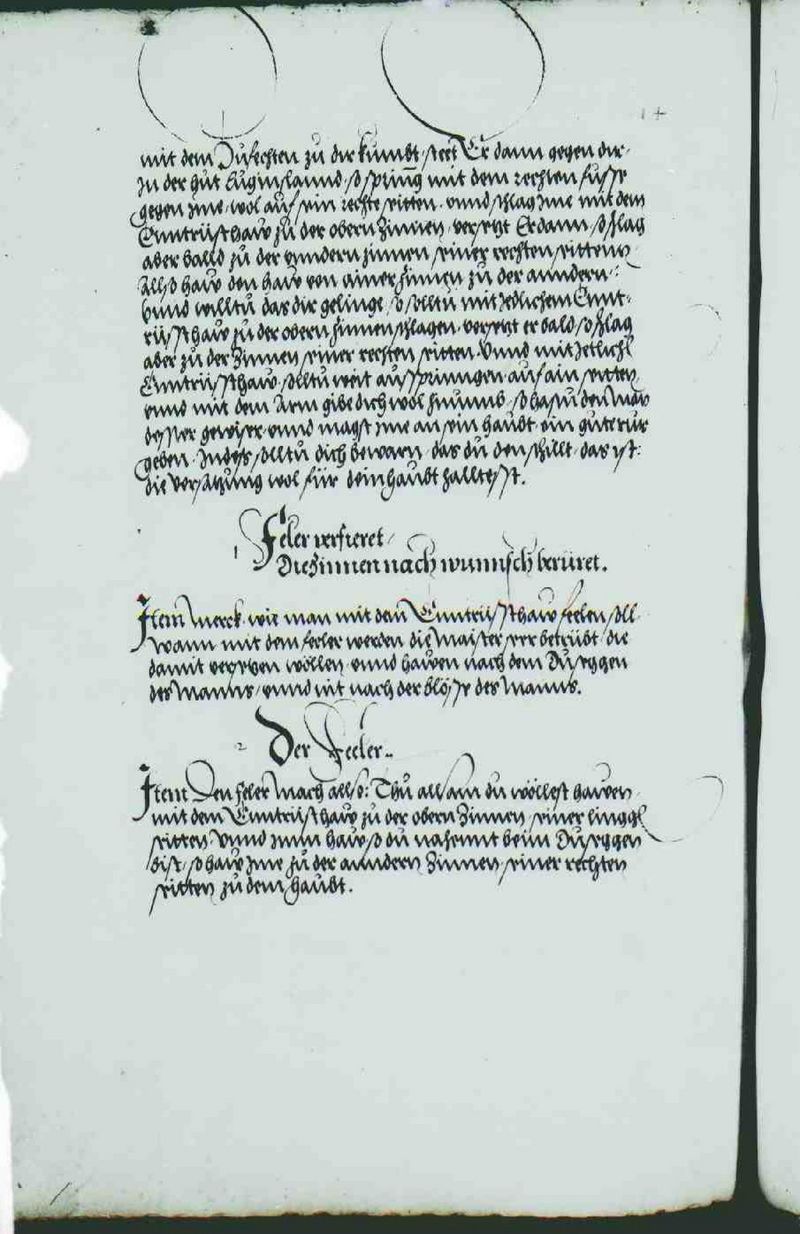 mit dem Zufechten zu dir kumbt, steet Er dann gegen dir
In der hut Luginslannd, so spring mit dem rechten fusse
gegen Ime, wol auf sein rechte seitten, vnnd schlag Ime mit dem
Enntrüsthaw zu der obern Zinnen, versetzt Er dann, so schlag
aber balld zu der vndern zinnen seiner rechten seittenn
Allso haw den haw von ainer Zinnen zu der anndern:
Vnnd willtu das dir gelinge, so solltu mit Jedlichem Ennt=
rüsthaw zu der obern Zinnen schlagen, versetzt er bald, so schlag
aber zu der Zinnen seiner rechten seitten. Vnnd mit Jetlichem
Enntrüsthaw solltu weit ausspringen auf ain seitten
vnnd mit dem Arm gibe dich wol hinumb, so hastu den haw
desster gewiser, vnnd magst Ime an sein haubt ein gute rur
geben. Indes solltu dich bewarn, das du den schillt, das ist:
die versatzung wol für dein haubt halltesst.
Feler verfieret
Die Zinnen nach wunnsch berüret.
Item Merck wie man mit dem Enntrüsthaw feelen soll
Wann mit dem feeler werden die Maister seer betrübt die
damit versetzen wöllen vnnd hawen nach dem Duseggen
des Manns, vnnd nit nach der blösse des Manns.
Der Feeler.
Item Den feler mach allso: Thu allsam du wöllest hawen
mit dem Enntrüsthaw zu der obern Zinnen seiner linggen
seitten Vnnd Inn haw so du nahennt beim Dusseggen
bist, so haw Ime zu der anndern Zinnen seiner rechten
seitten zu dem haubt.